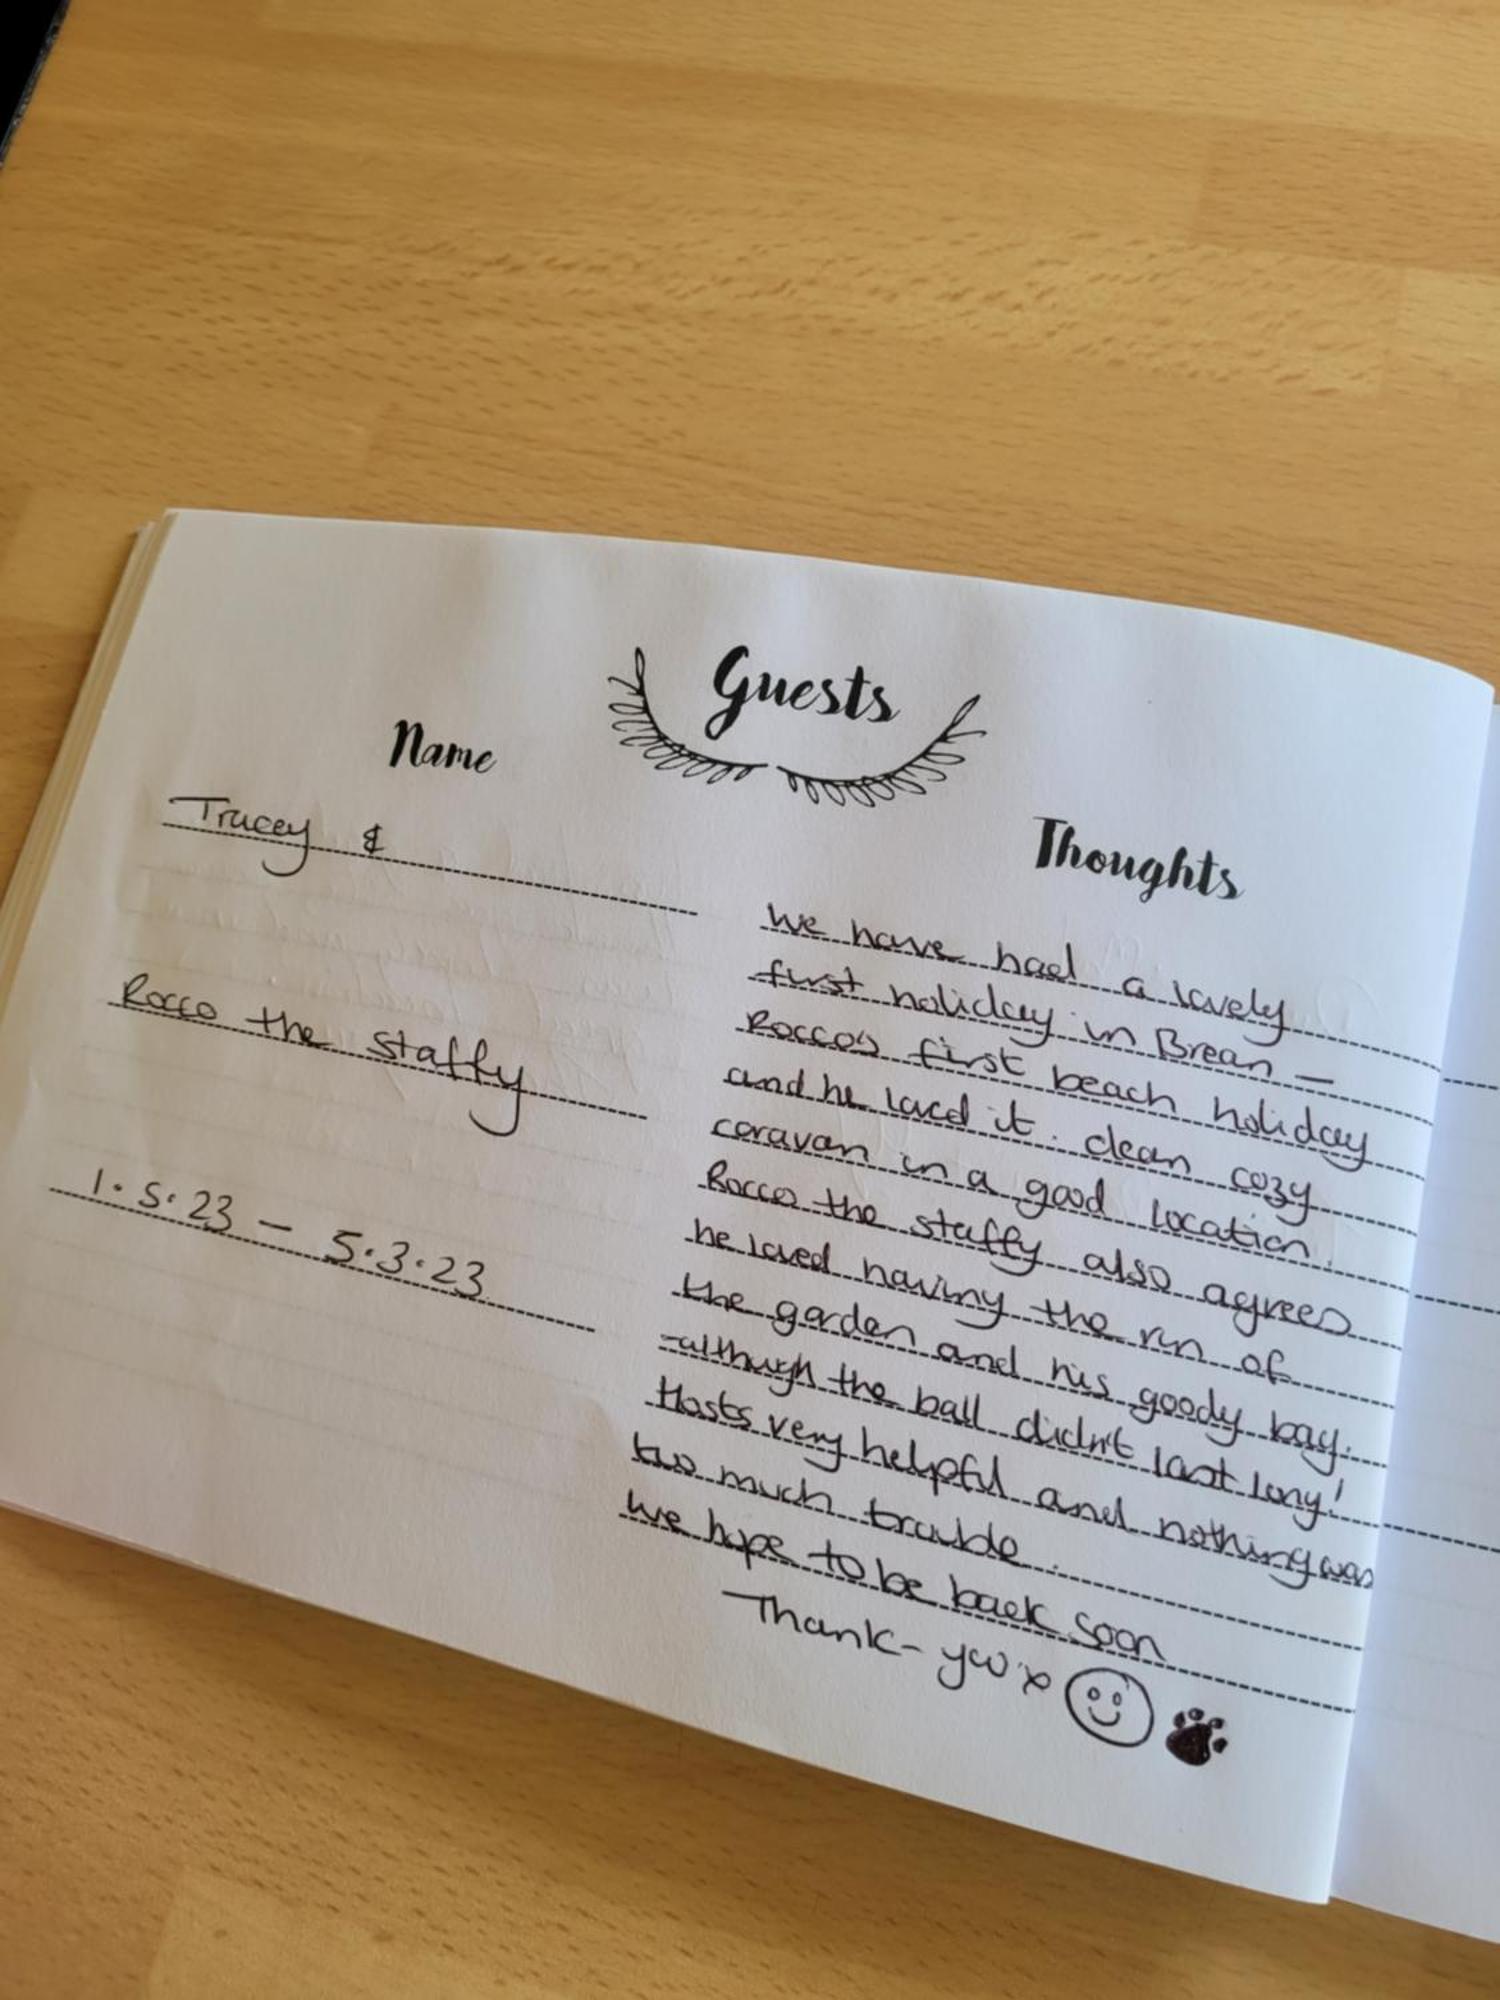 Guests
Name
Tracey &
Rocco the staffy
1.5.23 - 5.3.23
Thoughts
We have had a lovely
first holiday in Brean -
Rocco's first beach holiday
and he loved it. Clean cozy
caravan in a good location.
Rocco the staffy also agrees
he loved having the run of
the garden and his goody bag.
-although the ball didn't last long!
Hosts very helpful and nothing was
too much trouble.
We hope to be back soon
Thank-you x